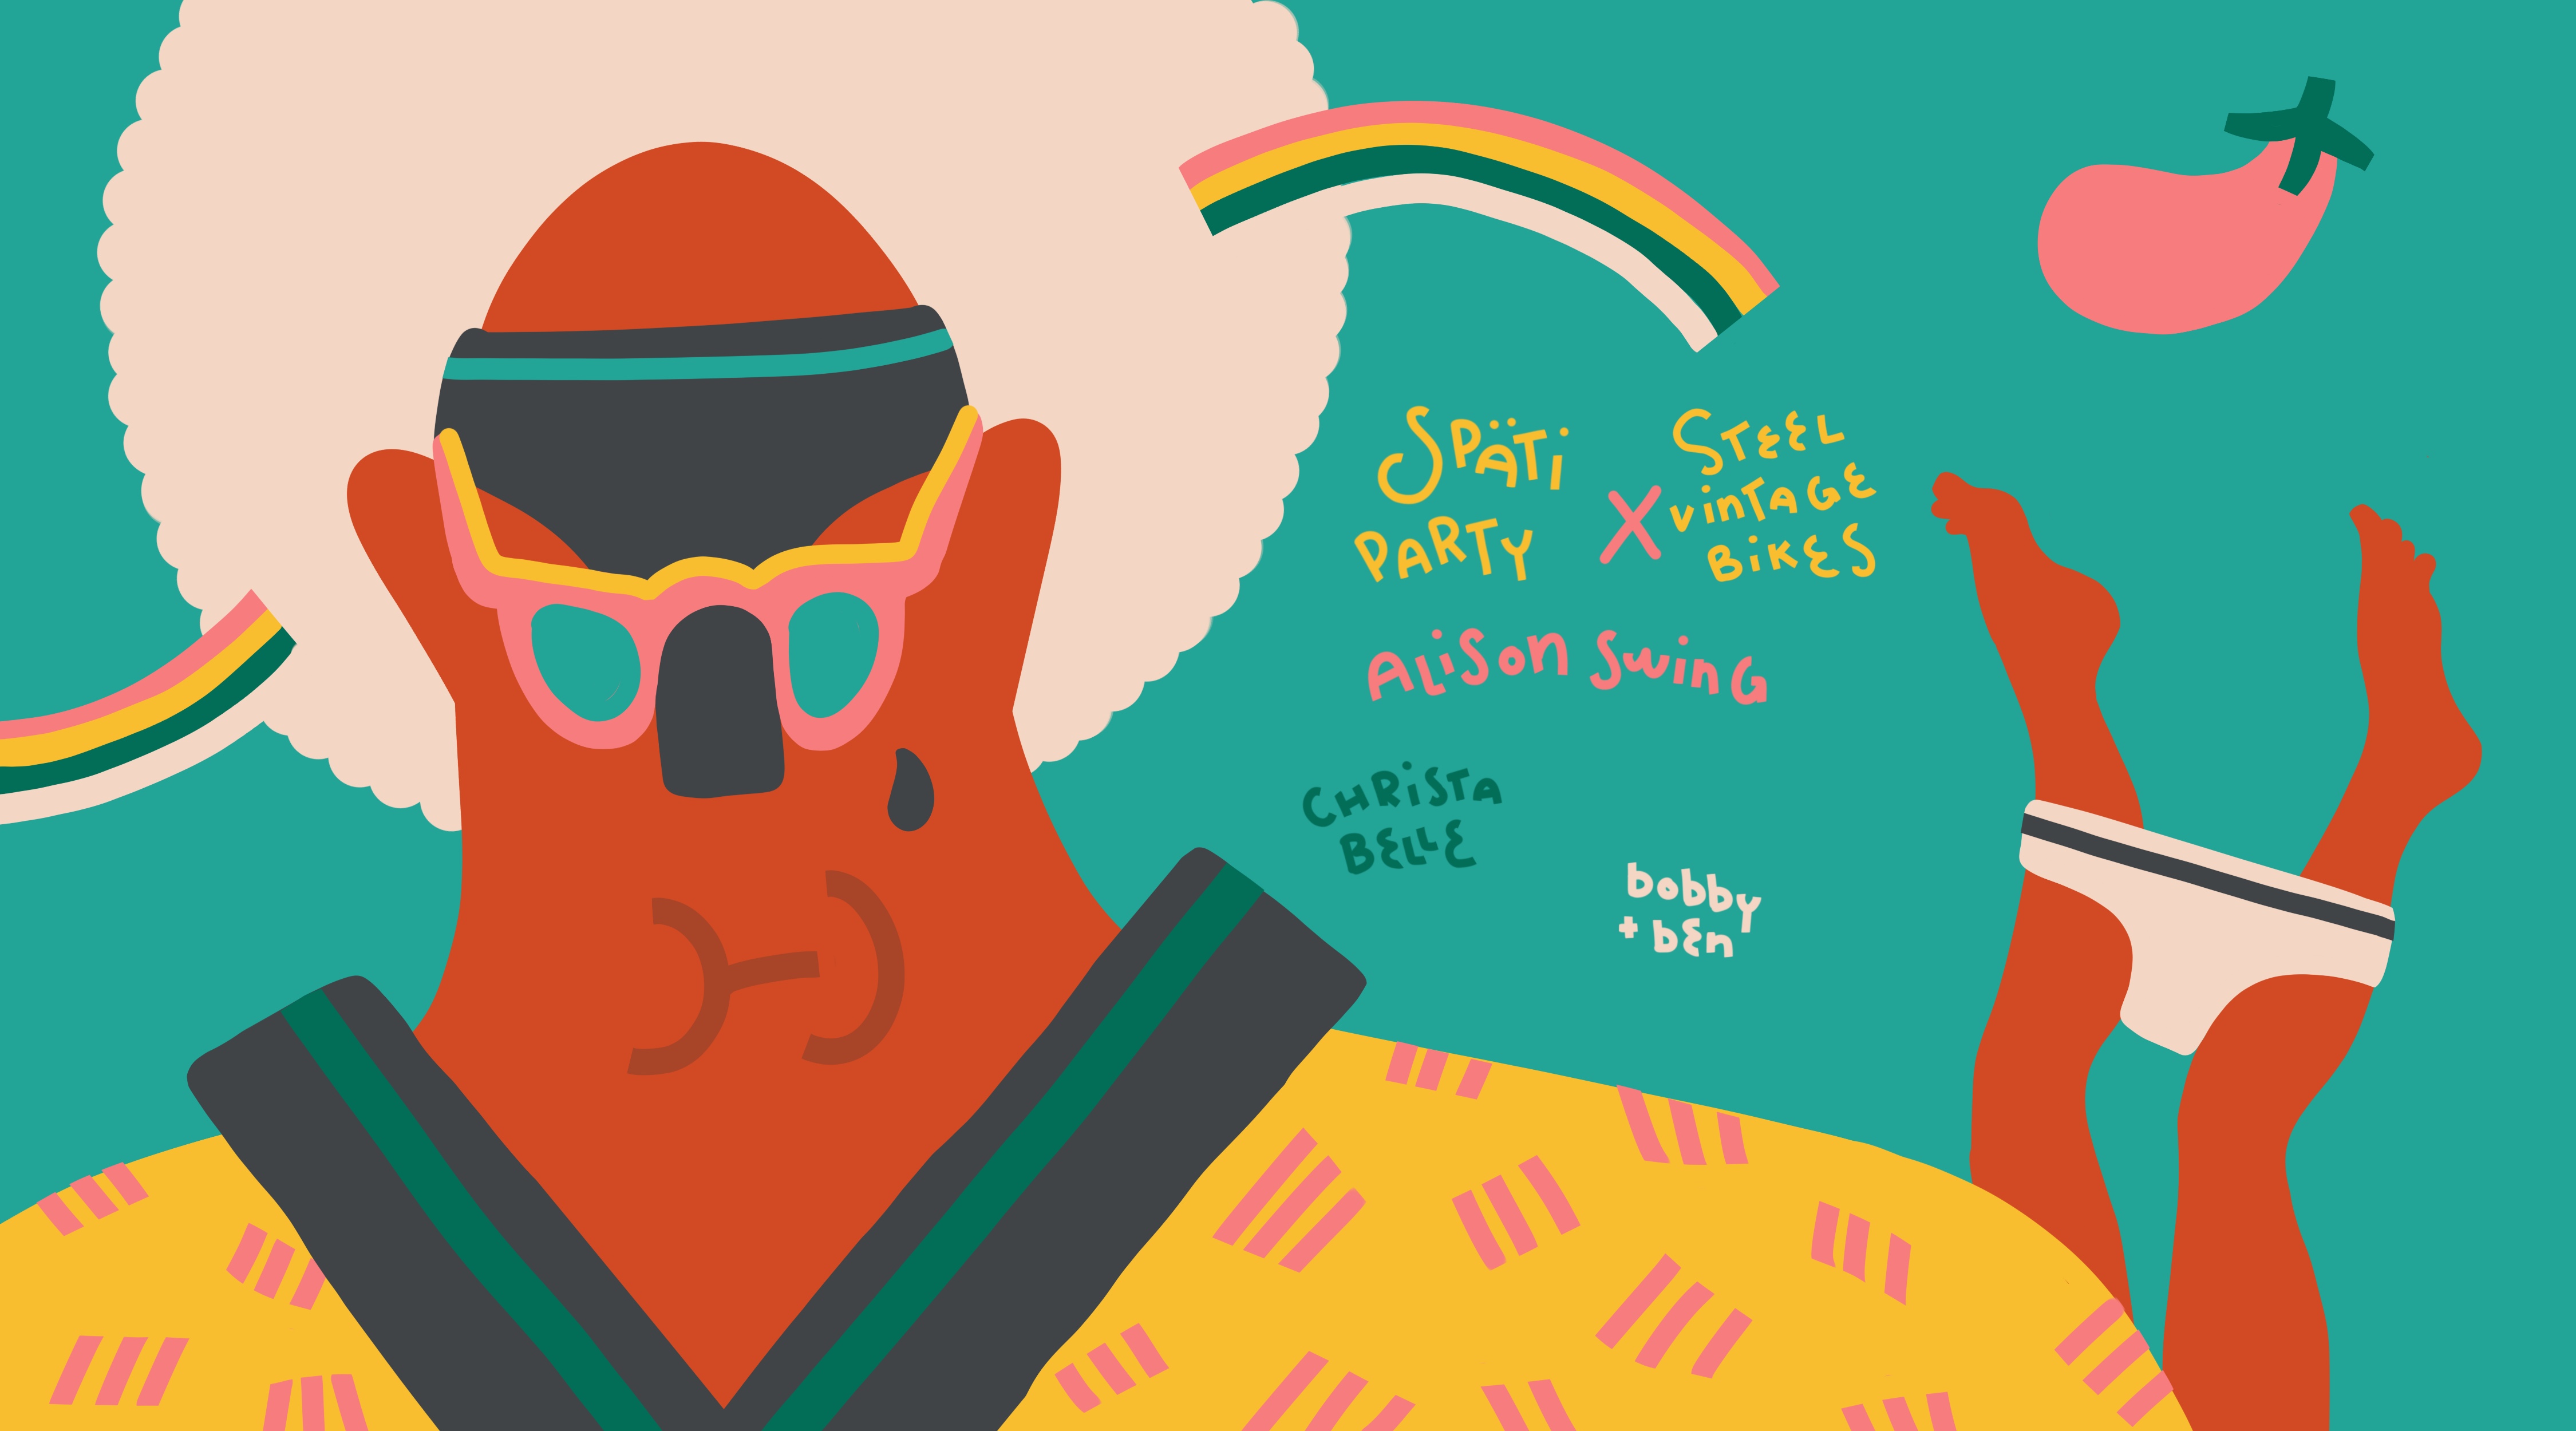 SPÄTi
PARTY
X
STEEL
vinTAGE
BiKES
ALiSon SwinG
CHRiSTA
BELLE
bobby
+ bEn